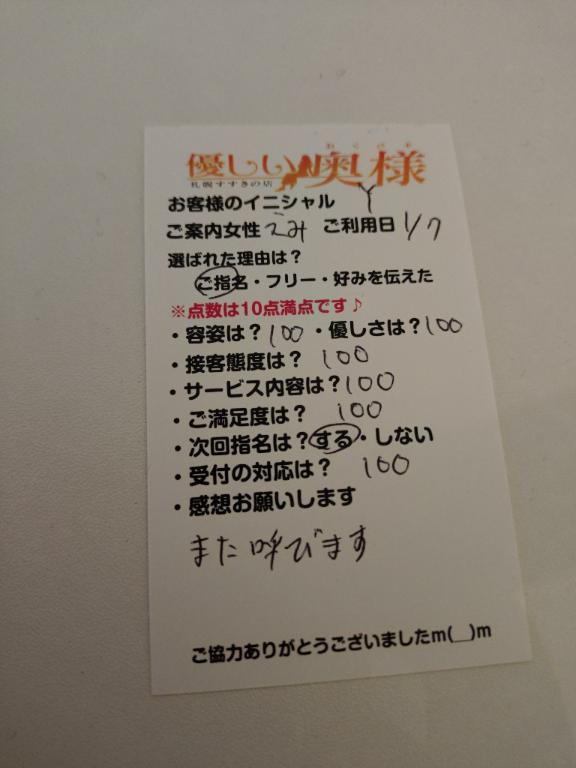 おくさま
優しい奥様
札幌すすきの店
お客様のイニシャル Y
ご案内女性 えみ ご利用日 1/7
選ばれた理由は?
ご指名・フリー・好みを伝えた
※点数は10点満点です♪
・容姿は? 100 ・優しさは? 100
・接客態度は? 100
・サービス内容は? 100
・ご満足度は? 100
・次回指名は? する・しない
・受付の対応は? 100
・感想お願いします
また呼びます
ご協力ありがとうございましたm(__)m